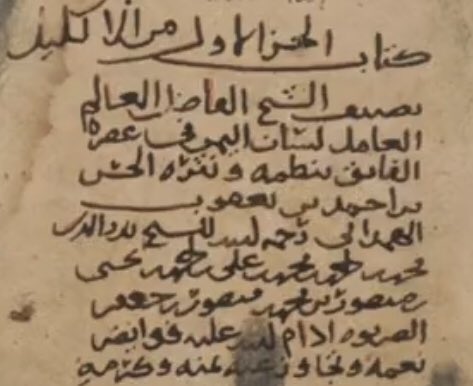 كتاب الجزء الاول من الاكليل
تصنيف الشيخ الفاضل العالم
العامل لسان اليمن في عصره
الفايق بنظمه ونثره الحسن
بن احمد بن يعقوب
الهمداني رحمه الله للشيخ
محمد بن محمد علي
منصور بن محمد بن منصور بن جعفر
ادام الله عليه
نعمه وتجاوز عنه بمنه وكرمه